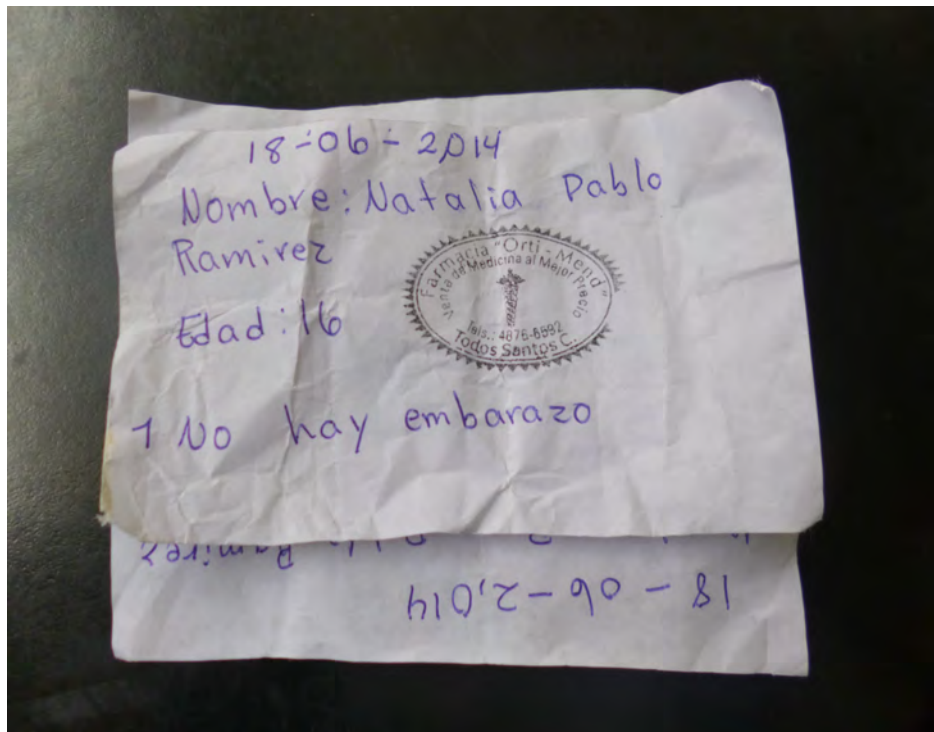 18-06-2,014
Nombre: Natalia Pablo
Ramirez
Edad: 16
Farmacia "Orti-Mend"
Venta de Medicina al Mejor Precio
Tels.: 4876-6592
Todos Santos C.
1 No hay embarazo
Ramirez
18-06-2,014